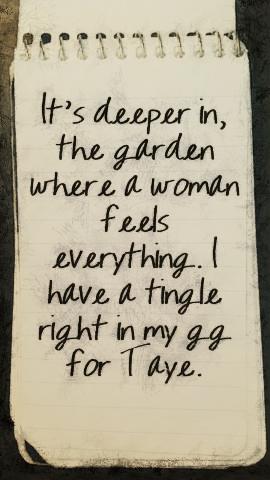 It's deeper in,
the garden
where a woman
feels
everything. I
have a tingle
right in my gg
for Taye.